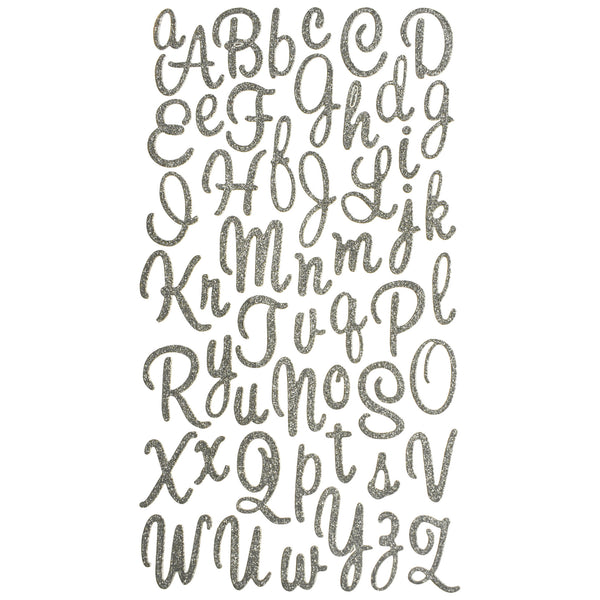 a A B b c C D
E e F G h d g
I H f J L i j k
K r M n m
R y T v q P l
u N o S O
X x Q p t s V
W U w Y z Z